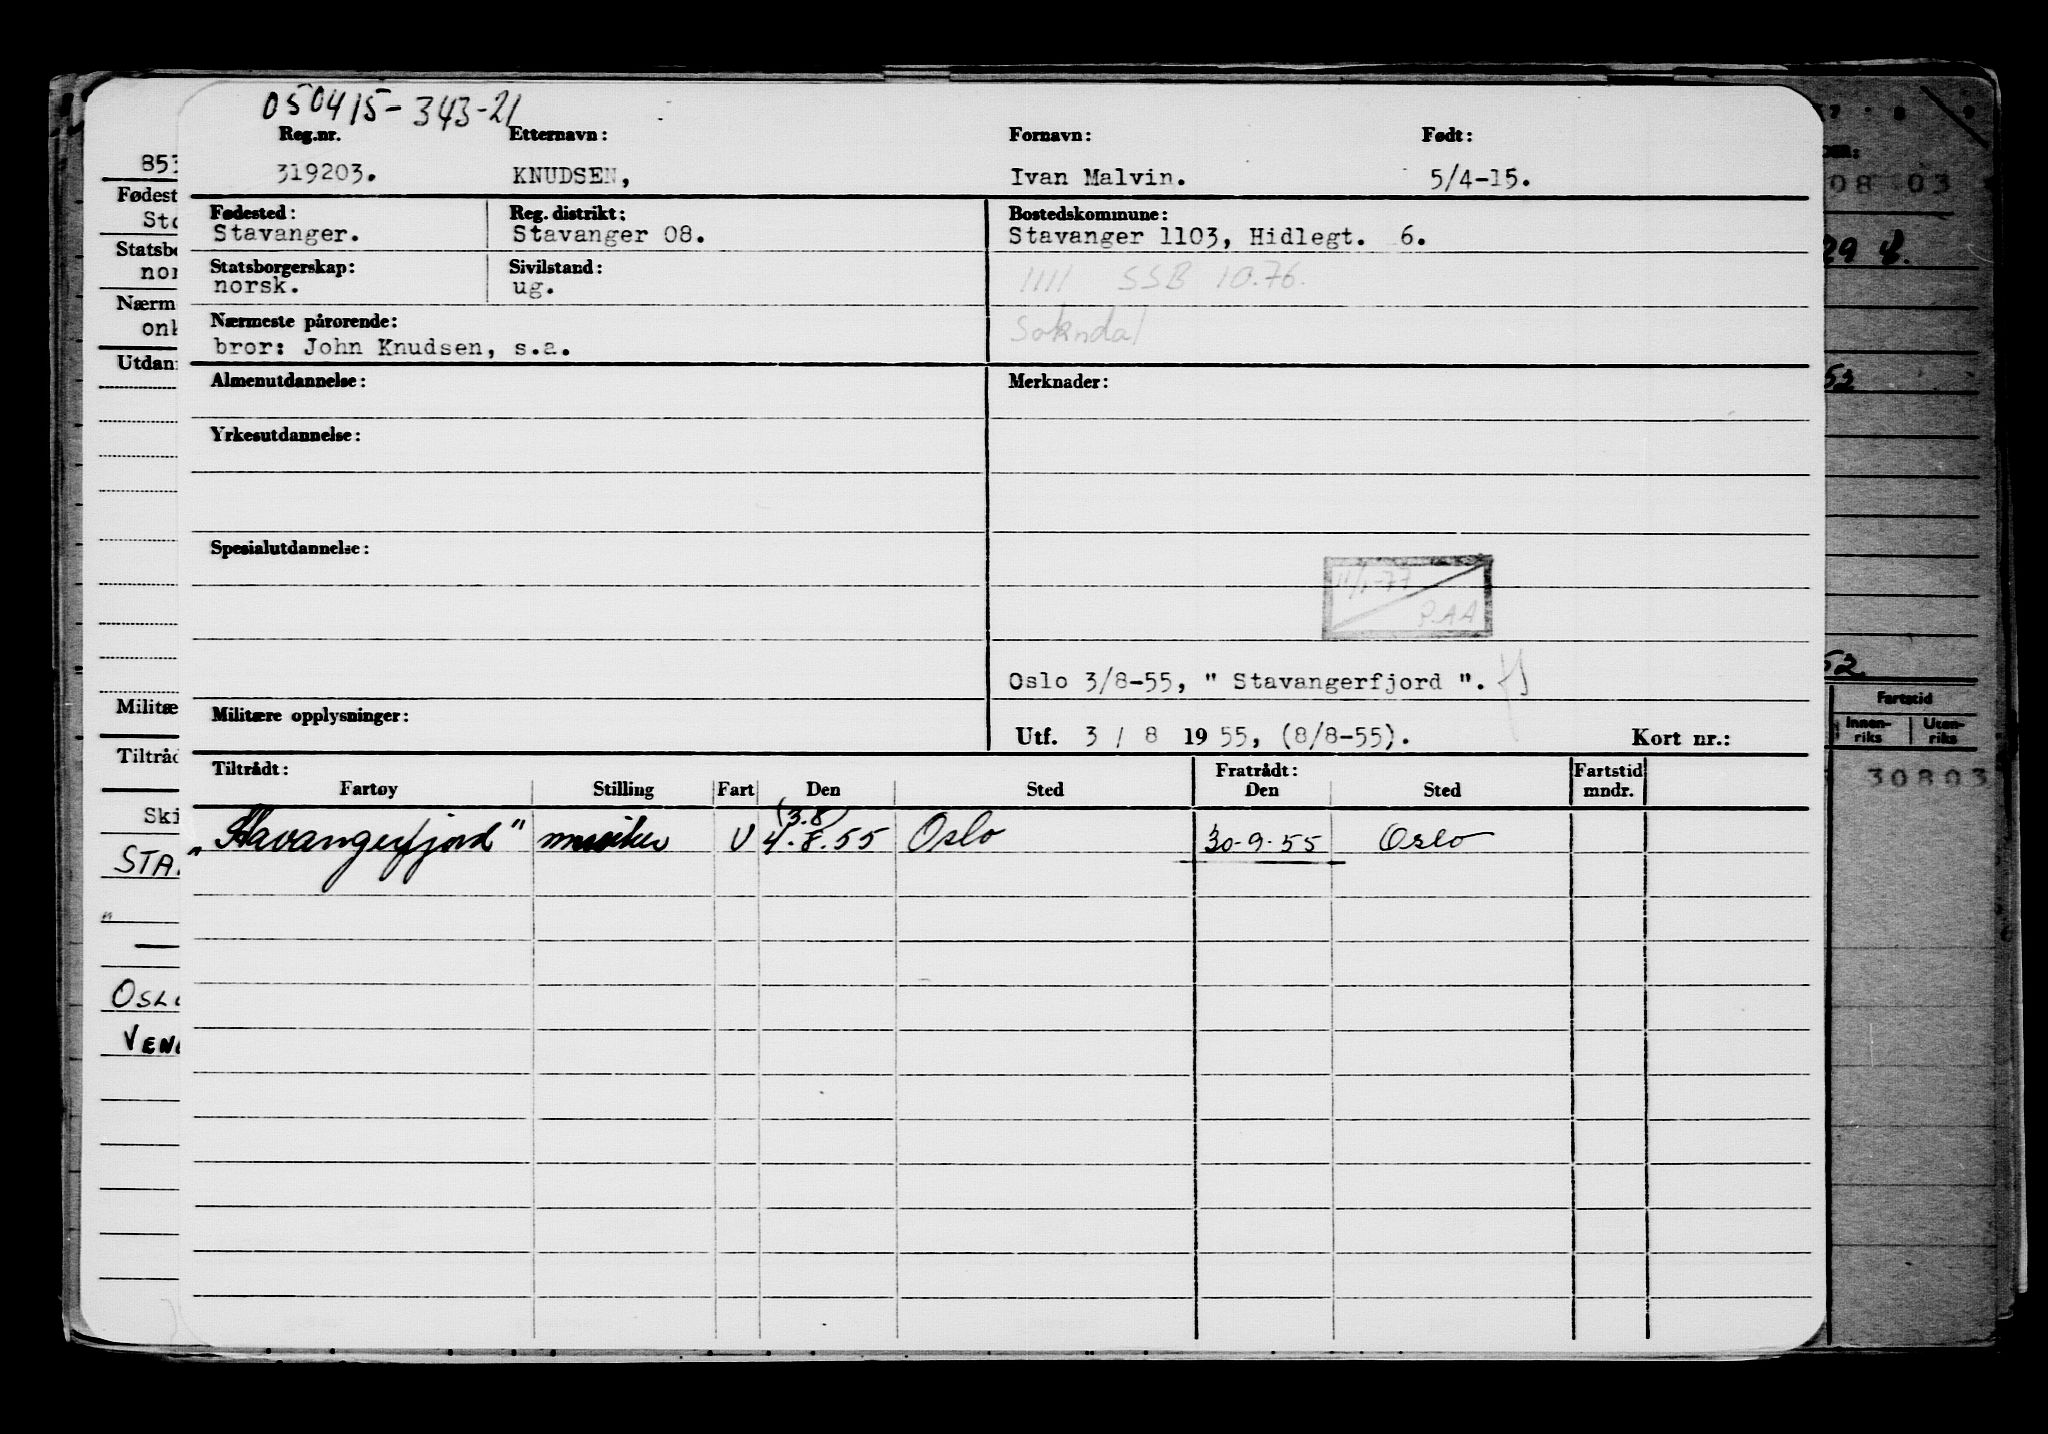 050415-343-21
Reg.nr. Etternavn: Fornavn: Født:
319203. KNUDSEN, Ivan Malvin. 5/4-15.
Fødested: Reg. distrikt: Bostedskommune:
Stavanger. Stavanger 08. Stavanger 1103, Hidlegt. 6.
Statsborgerskap: Sivilstand:
norsk. ug. 1111 SSB 10.76.
Nærmeste pårørende: Sokndal
bror: John Knudsen, s.a.
Almenutdannelse: Merknader:
Yrkesutdannelse:
Spesialutdannelse:
11/1-77
P.AA
Oslo 3/8-55, " Stavangerfjord ".
Militære opplysninger:
Utf. 3 / 8 1955, (8/8-55). Kort nr.:
Tiltrådt: Fratrådt: Fartstid
Fartøy Stilling Fart Den Sted Den Sted mndr.
(3.8)
"Stavangerfjord" musiker U 4.8.55 Oslo 30-9-55 Oslo
853
Fødest
Statsbo
nor
Nærm
onk
Utdan
Militæ
Tiltråd
Ski
STA
OSLO
VEN
08 03
29 8.
53
52
Fartstid
Innen- Uten-
riks riks
30803